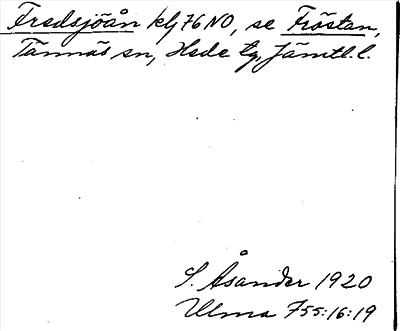 Fredsjöån kbl 76 NO, se Fröstan,
Tännäs sn, Hede tg, Jämtl. l.
S. Åsander 1920
Ulma 755:16:19